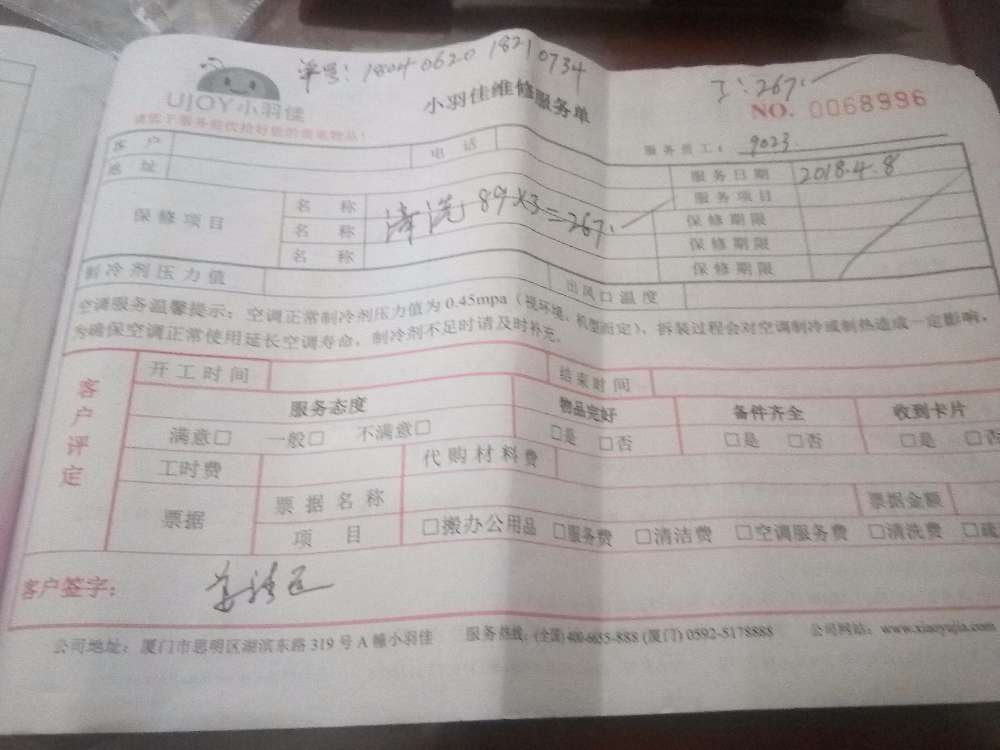 单号：18040620 18210734
工：267.
UJOY小羽佳
小羽佳维修服务单
NO. 0068996
服务员工：9023.
客户 电话 服务日期 2018.4.8
地址 服务项目
保修项目 名称 清洗 89×3=267. 保修期限
名称 保修期限
名称 保修期限
制冷剂压力值 出风口温度
空调服务温馨提示：空调正常制冷剂压力值为0.45mpa（视环境、机型而定），拆装过程会对空调制冷或制热造成一定影响。
为确保空调正常使用延长空调寿命，制冷剂不足时请及时补充。
客户评定
开工时间 结束时间
服务态度 物品完好 备件齐全 收到卡片
满意□ 一般□ 不满意□ □是 □否 □是 □否 □是 □否
工时费 代购材料费
票据 票据名称 票据金额
项目 □搬办公用品 □服务费 □清洁费 □空调服务费 □清洗费 □疏
客户签字：
公司地址：厦门市思明区湖滨东路319号A幢小羽佳 服务热线：(全国)400-6655-888 (厦门) 0592-5178888 公司网站：www.xiaoyujia.com